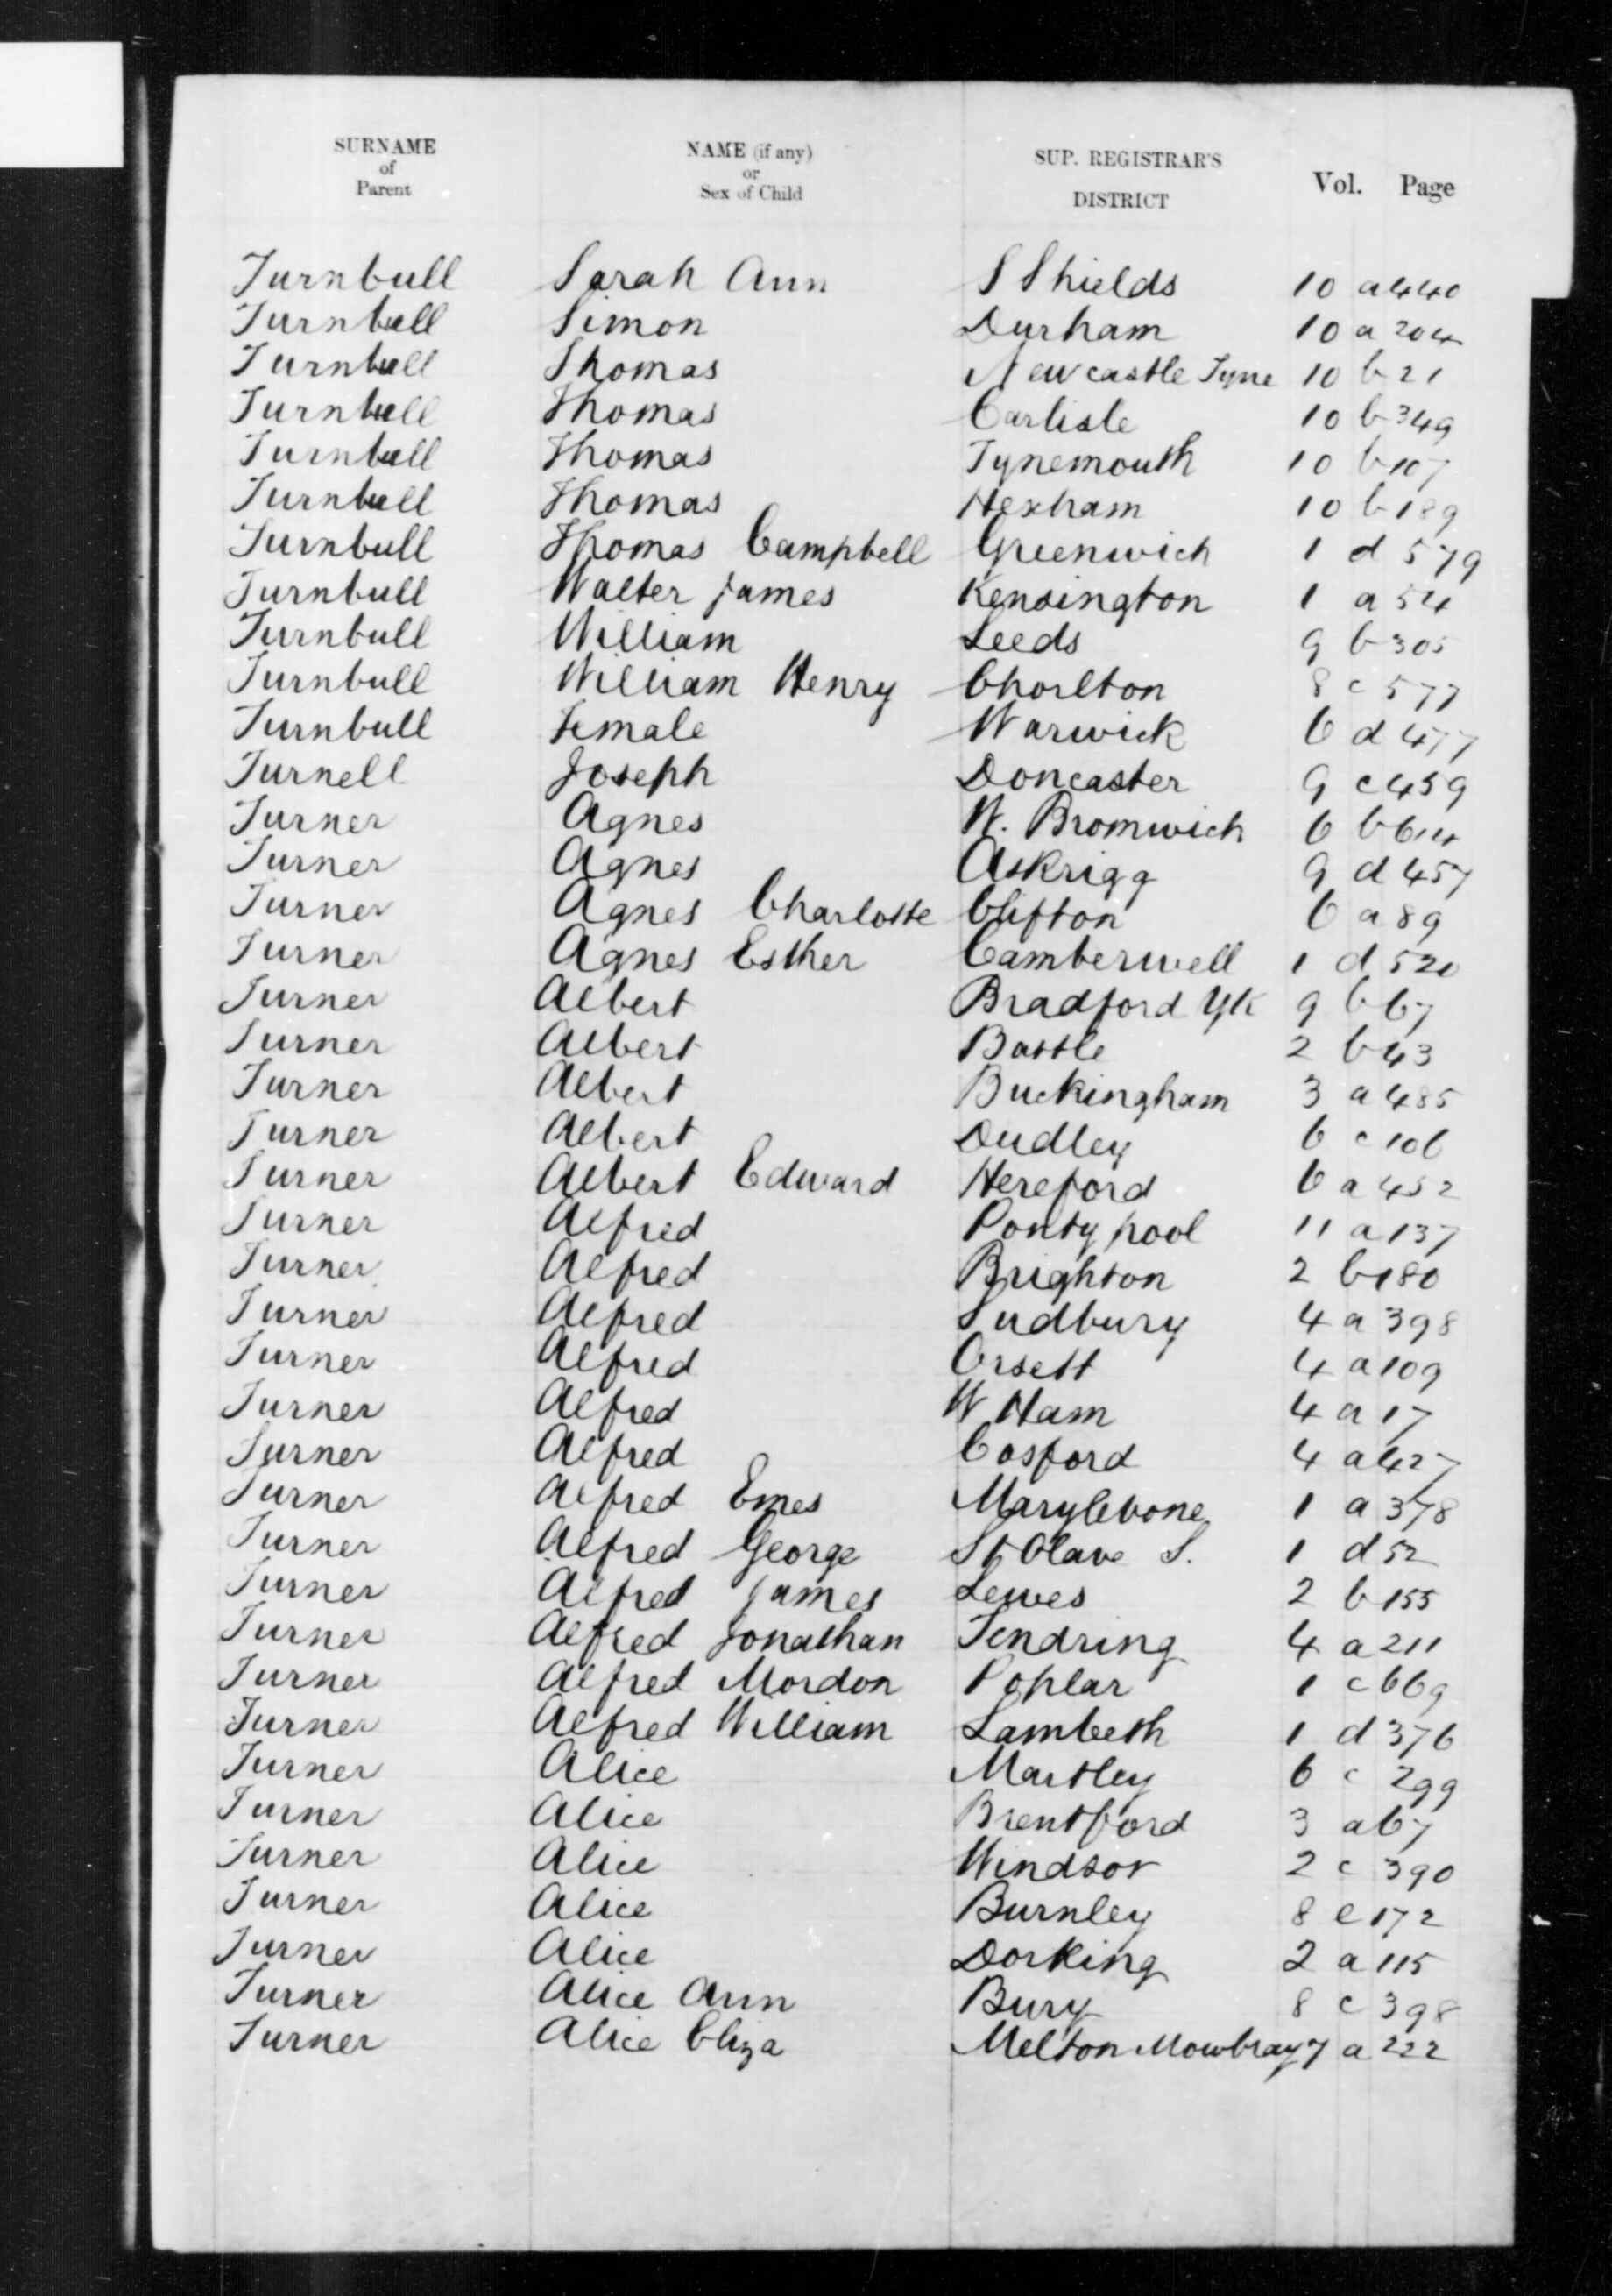 SURNAME of Parent NAME (if any) or Sex of Child SUP. REGISTRAR'S DISTRICT Vol. Page
Turnbull Sarah Ann S Shields 10 a 440
Turnbull Simon Durham 10 a 204
Turnbull Thomas Newcastle Tyne 10 b 21
Turnbull Thomas Carlisle 10 b 349
Turnbull Thomas Tynemouth 10 b 107
Turnbull Thomas Hexham 10 b 189
Turnbull Thomas Campbell Greenwich 1 d 579
Turnbull Walter James Kensington 1 a 54
Turnbull William Leeds 9 b 305
Turnbull William Henry Chorlton 8 c 577
Turnbull Female Warwick 6 d 477
Turnell Joseph Doncaster 9 c 459
Turner Agnes W. Bromwich 6 b 614
Turner Agnes Askrigg 9 d 457
Turner Agnes Charlotte Clifton 6 a 89
Turner Agnes Esther Camberwell 1 d 520
Turner Albert Bradford Yk 9 b 67
Turner Albert Battle 2 b 43
Turner Albert Buckingham 3 a 485
Turner Albert Dudley 6 c 106
Turner Albert Edward Hereford 6 a 452
Turner Alfred Pontypool 11 a 137
Turner Alfred Brighton 2 b 180
Turner Alfred Sudbury 4 a 398
Turner Alfred Orsett 4 a 109
Turner Alfred W Ham 4 a 17
Turner Alfred Cosford 4 a 427
Turner Alfred Emes Marylebone 1 a 378
Turner Alfred George St Olave S. 1 d 52
Turner Alfred James Lewes 2 b 155
Turner Alfred Jonathan Tendring 4 a 211
Turner Alfred Mordon Poplar 1 c 669
Turner Alfred William Lambeth 1 d 376
Turner Alice Martley 6 c 299
Turner Alice Brentford 3 a 67
Turner Alice Windsor 2 c 390
Turner Alice Burnley 8 e 172
Turner Alice Dorking 2 a 115
Turner Alice Ann Bury 8 c 398
Turner Alice Eliza Melton Mowbray 7 a 222